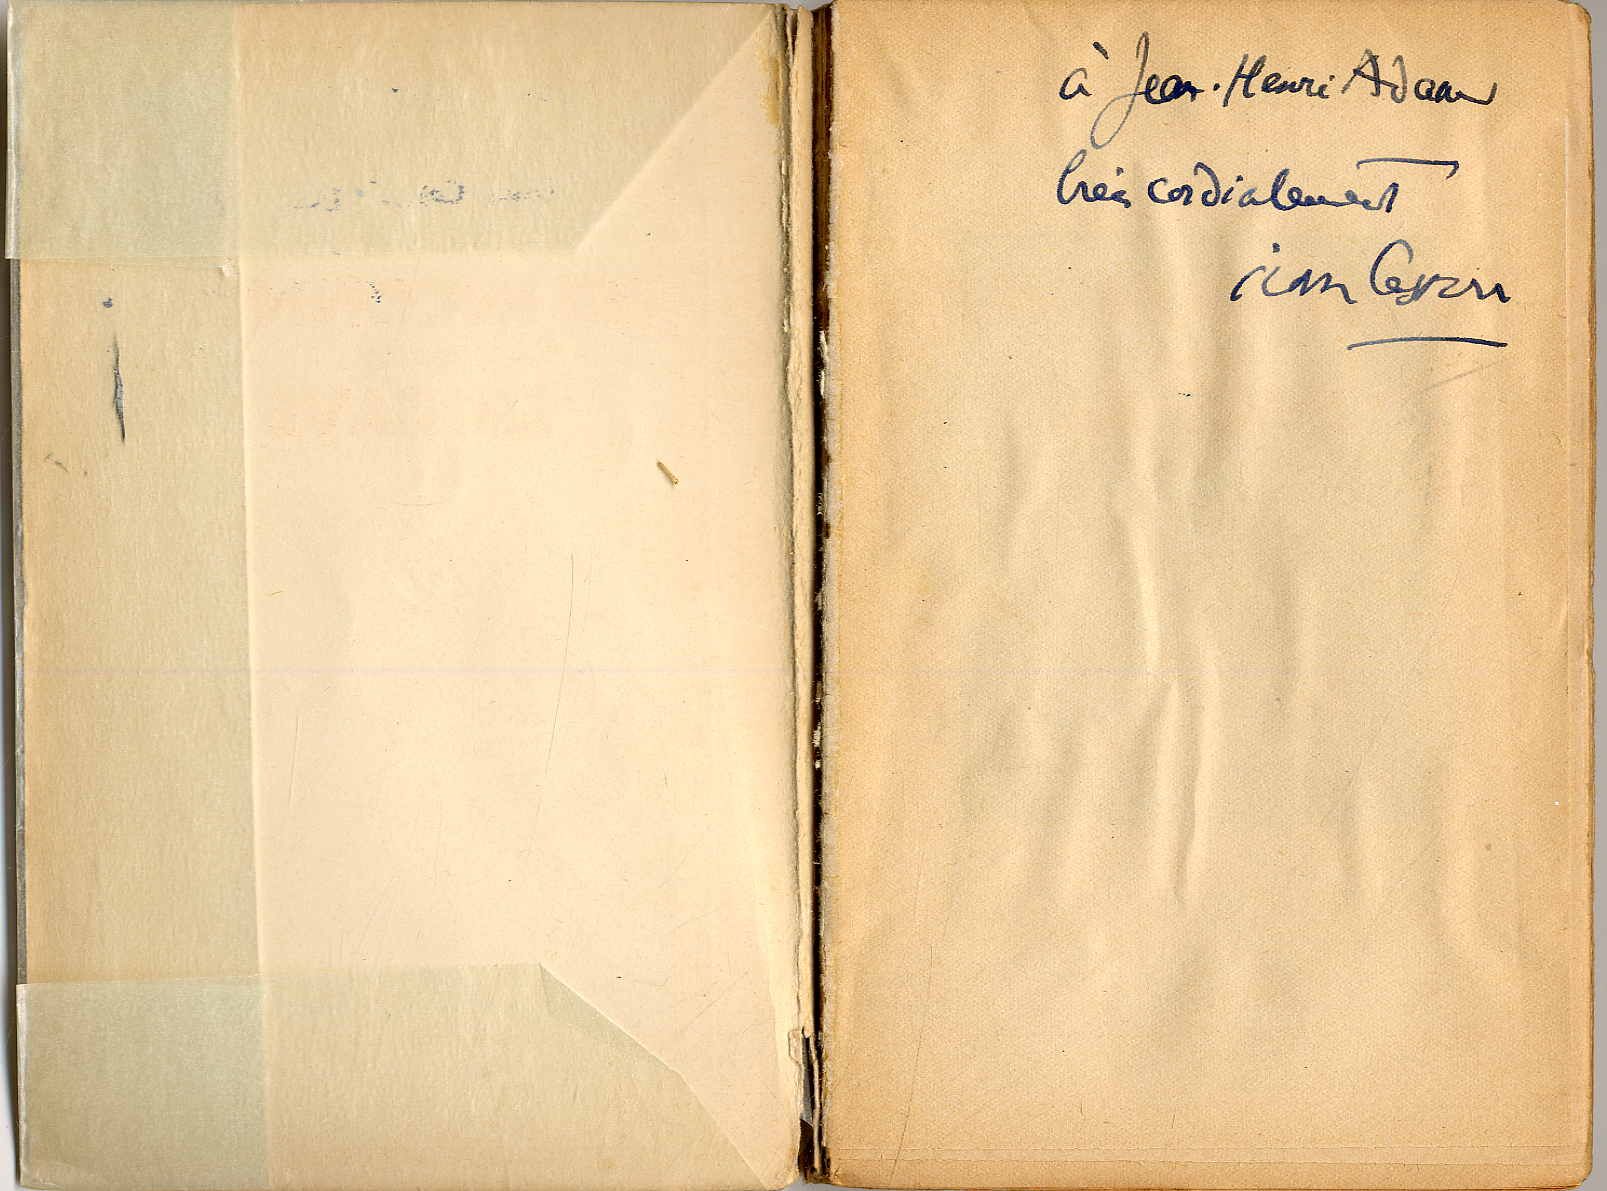 à Jean-Henri Adam
très cordialement
Jean Cayrol